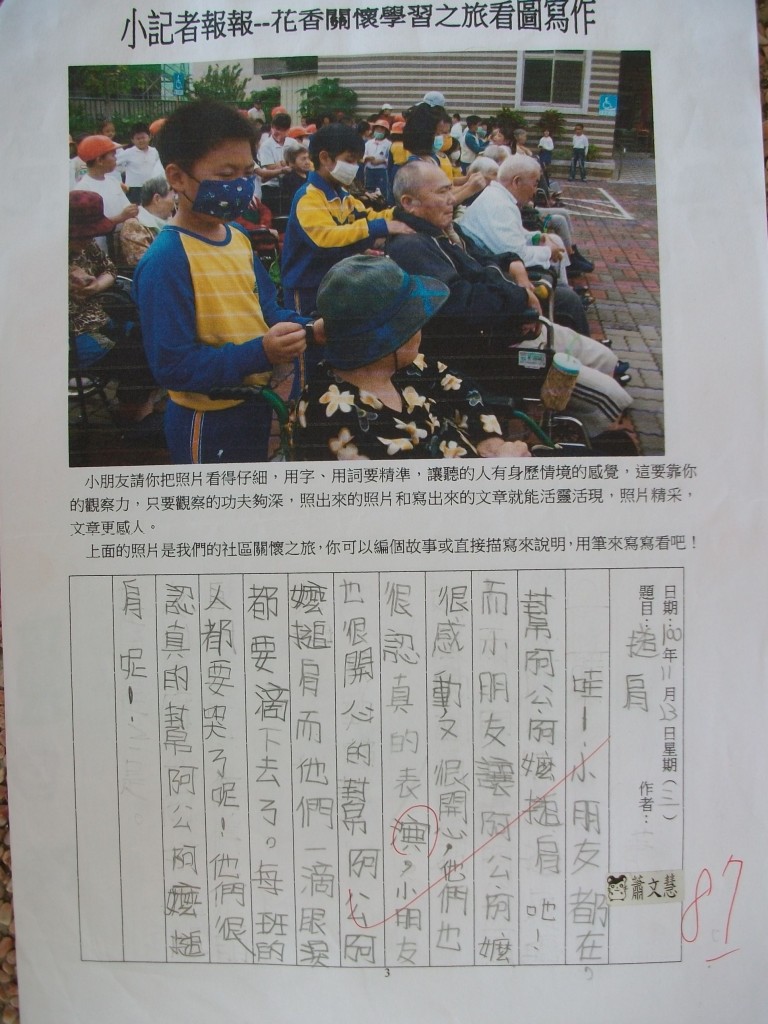 小記者報報--花香關懷學習之旅看圖寫作
小朋友請你把照片看得仔細，用字、用詞要精準，讓聽的人有身歷情境的感覺，這要靠你
的觀察力，只要觀察的功夫夠深，照出來的照片和寫出來的文章就能活靈活現，照片精采，
文章更感人。
上面的照片是我們的社區關懷之旅，你可以編個故事或直接描寫來說明，用筆來寫寫看吧！
日期：100年11月23日星期（三）
題目：搥肩 作者：
蕭文慧
哇！小朋友都在，
幫阿公阿嬤搥肩吔！
而小朋友讓阿公阿嬤
很感動又很開心，他們也
很認真的表演，小朋友
也很開心的幫阿公阿
嬤搥肩而他們一滴眼淚
都要滴下去了。每班的
人都要哭了呢！他們很
認真的幫阿公阿嬤搥
肩呢！
87
3